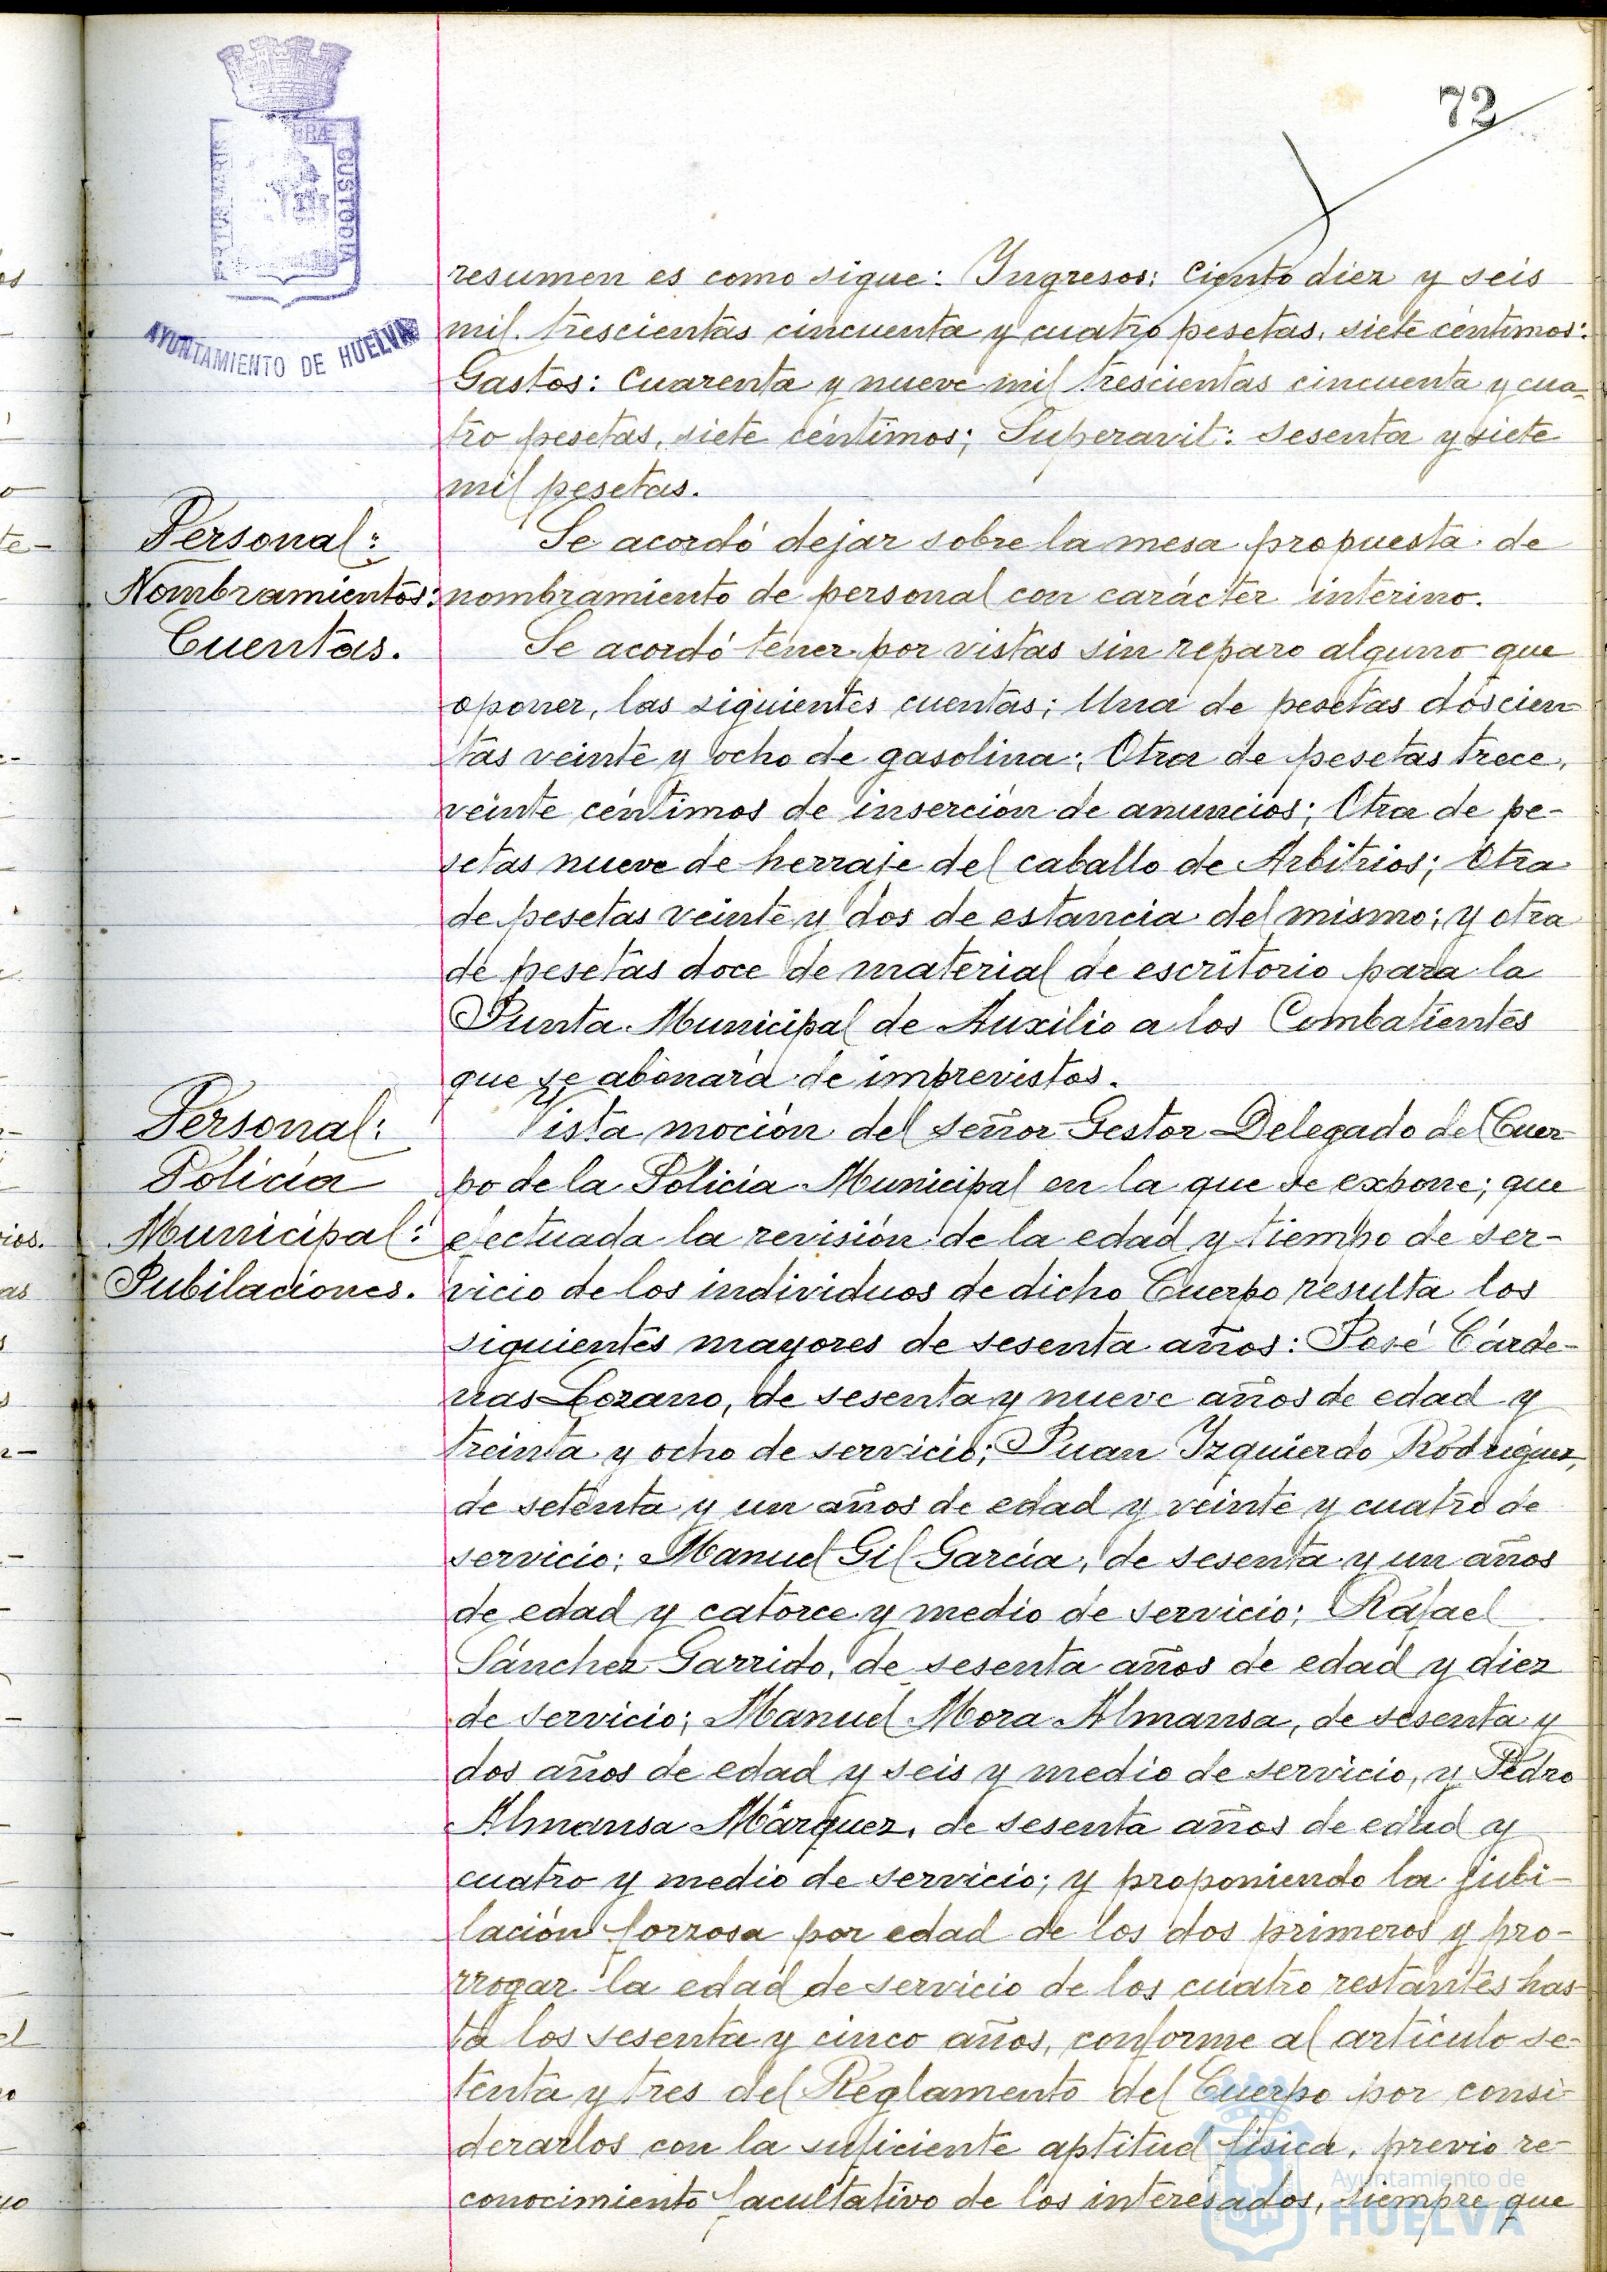 72
AYUNTAMIENTO DE HUELVA
CUSTODIA
resumen es como sigue: Ingresos: Ciento diez y seis
mil trescientas cincuenta y cuatro pesetas, siete céntimos:
Gastos: Cuarenta y nueve mil trescientas cincuenta y cua-
tro pesetas, siete céntimos; Superavit: sesenta y siete
mil pesetas.
Personal:
Nombramientos:
Se acordó dejar sobre la mesa propuesta de
nombramiento de personal con carácter interino.
Cuentas.
Se acordó tener por vistas sin reparo alguno que
oponer, las siguientes cuentas; Una de pesetas doscien-
tas veinte y ocho de gasolina; Otra de pesetas trece,
veinte céntimos de inserción de anuncios; Otra de pe-
setas nueve de herraje del caballo de Arbitrios; Otra
de pesetas veinte y dos de estancia del mismo; y otra
de pesetas doce de material de escritorio para la
Junta Municipal de Auxilio a los Combatientes
que se abonará de imprevistos.
Personal:
Policía
Municipal:
Jubilaciones.
Vista moción del señor Gestor Delegado del Cuer-
po de la Policía Municipal en la que se expone; que
efectuada la revisión de la edad y tiempo de ser-
vicio de los individuos de dicho Cuerpo resulta los
siguientes mayores de sesenta años: José Cárde-
nas Lozano, de sesenta y nueve años de edad y
treinta y ocho de servicio; Juan Izquierdo Rodríguez,
de setenta y un años de edad y veinte y cuatro de
servicio; Manuel Gil García, de sesenta y un años
de edad y catorce y medio de servicio; Rafael
Sánchez Garrido, de sesenta años de edad y diez
de servicio; Manuel Mora Almansa, de sesenta y
dos años de edad y seis y medio de servicio, y Pedro
Almansa Márquez, de sesenta años de edad y
cuatro y medio de servicio; y proponiendo la jubi-
lación forzosa por edad de los dos primeros y pro-
rrogar la edad de servicio de los cuatro restantes has-
ta los sesenta y cinco años, conforme al artículo se-
tenta y tres del Reglamento del Cuerpo por consi-
derarlos con la suficiente aptitud física, previo re-
conocimiento facultativo de los interesados, siempre que
Ayuntamiento de
HUELVA